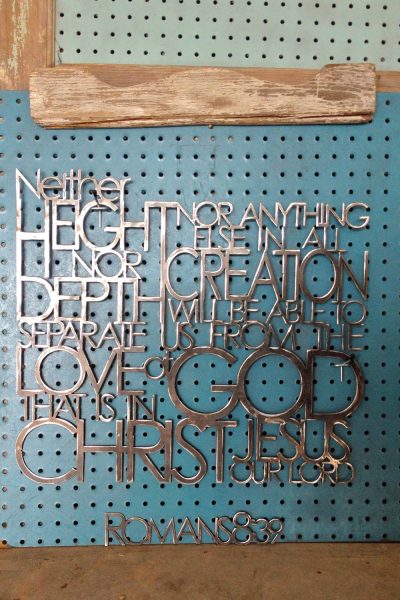 Neither
HEIGHT
NOR
DEPTH
NOR ANYTHING
ELSE IN ALL
CREATION
WILL BE ABLE TO
SEPARATE US FROM THE
LOVE of GOD
THAT IS IN
CHRIST JESUS
OUR LORD
ROMANS 8:39